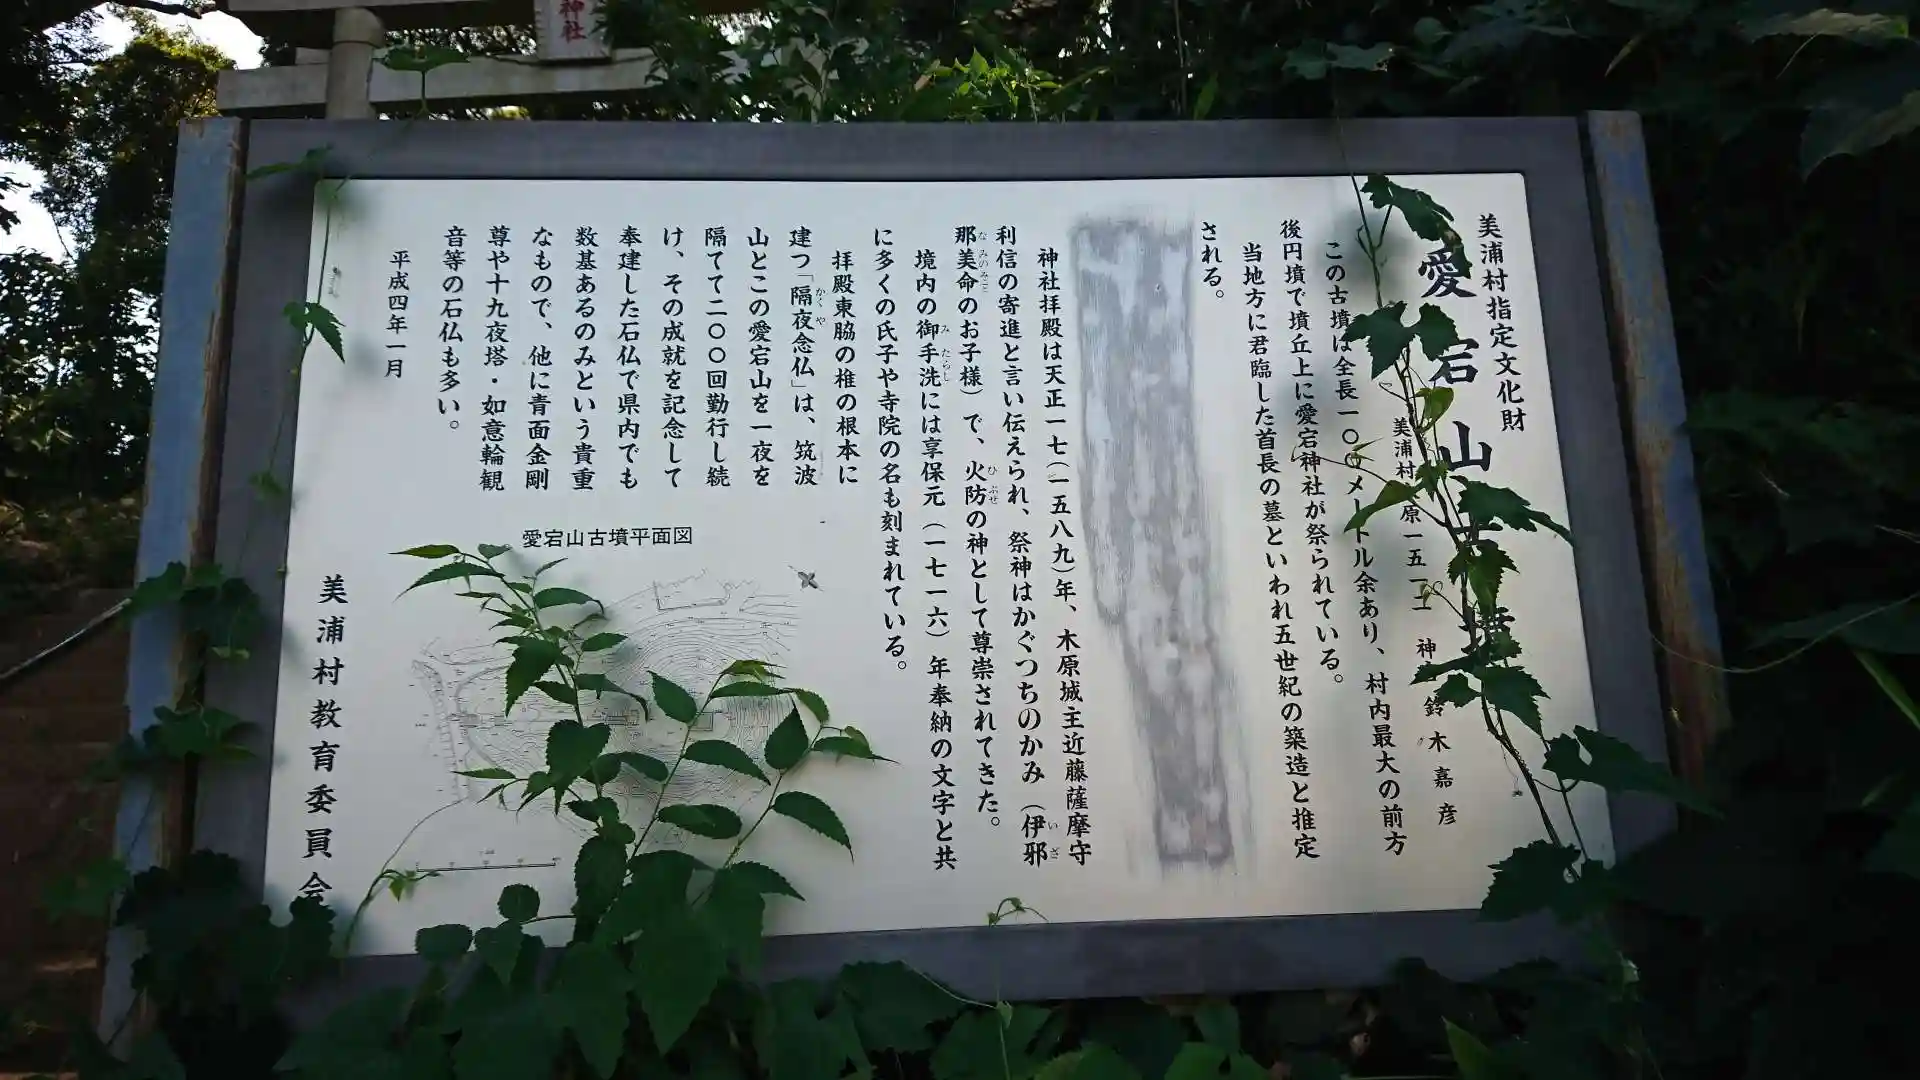 神社
美浦村指定文化財
愛宕山古墳
美浦村 原一五一二 神 鈴木嘉彦
この古墳は全長一〇〇メートル余あり、村内最大の前方
後円墳で墳丘上に愛宕神社が祭られている。
当地方に君臨した首長の墓といわれ五世紀の築造と推定
される。
神社拝殿は天正一七(一五八九)年、木原城主近藤薩摩守
利信の寄進と言い伝えられ、祭神はかぐつちのかみ(伊邪
那美命のお子様)で、火防の神として尊崇されてきた。
境内の御手洗には享保元(一七一六)年奉納の文字と共
に多くの氏子や寺院の名も刻まれている。
拝殿東脇の椎の根本に
建つ「隔夜念仏」は、筑波
山とこの愛宕山を一夜を
隔てて二〇〇回勤行し続
け、その成就を記念して
奉建した石仏で県内でも
数基あるのみという貴重
なもので、他に青面金剛
尊や十九夜塔・如意輪観
音等の石仏も多い。
平成四年一月
愛宕山古墳平面図
美浦村教育委員会